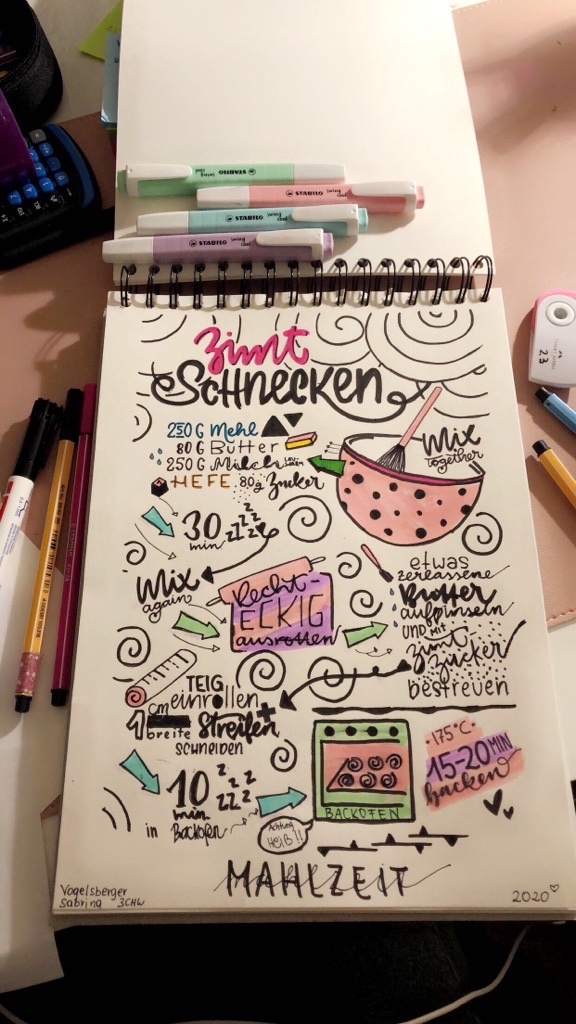 STABILO swing cool
STABILO swing cool
STABILO swing cool
STABILO swing cool
Zimt
SCHNECKEN
250 G Mehl
80 G Butter
250 G Milch LAU-WARM
HEFE 80g Zucker
Mix
together
30
min
zzzz
Mix
again
Recht-
ECKIG
ausrollen
etwas
zerlassene
Butter
aufpinseln
UND MIT
Zimt
zucker
bestreuen
TEIG
einrollen
+
1 cm
breite Streifen
SCHNEIDEN
10
min.
zzzzz
in Backofen
Achtung
HEIß!!
BACKOFEN
175°C
15-20 MIN
backen
MAHLZEIT
Vogelsberger
Sabrina 3CHW
2020
23